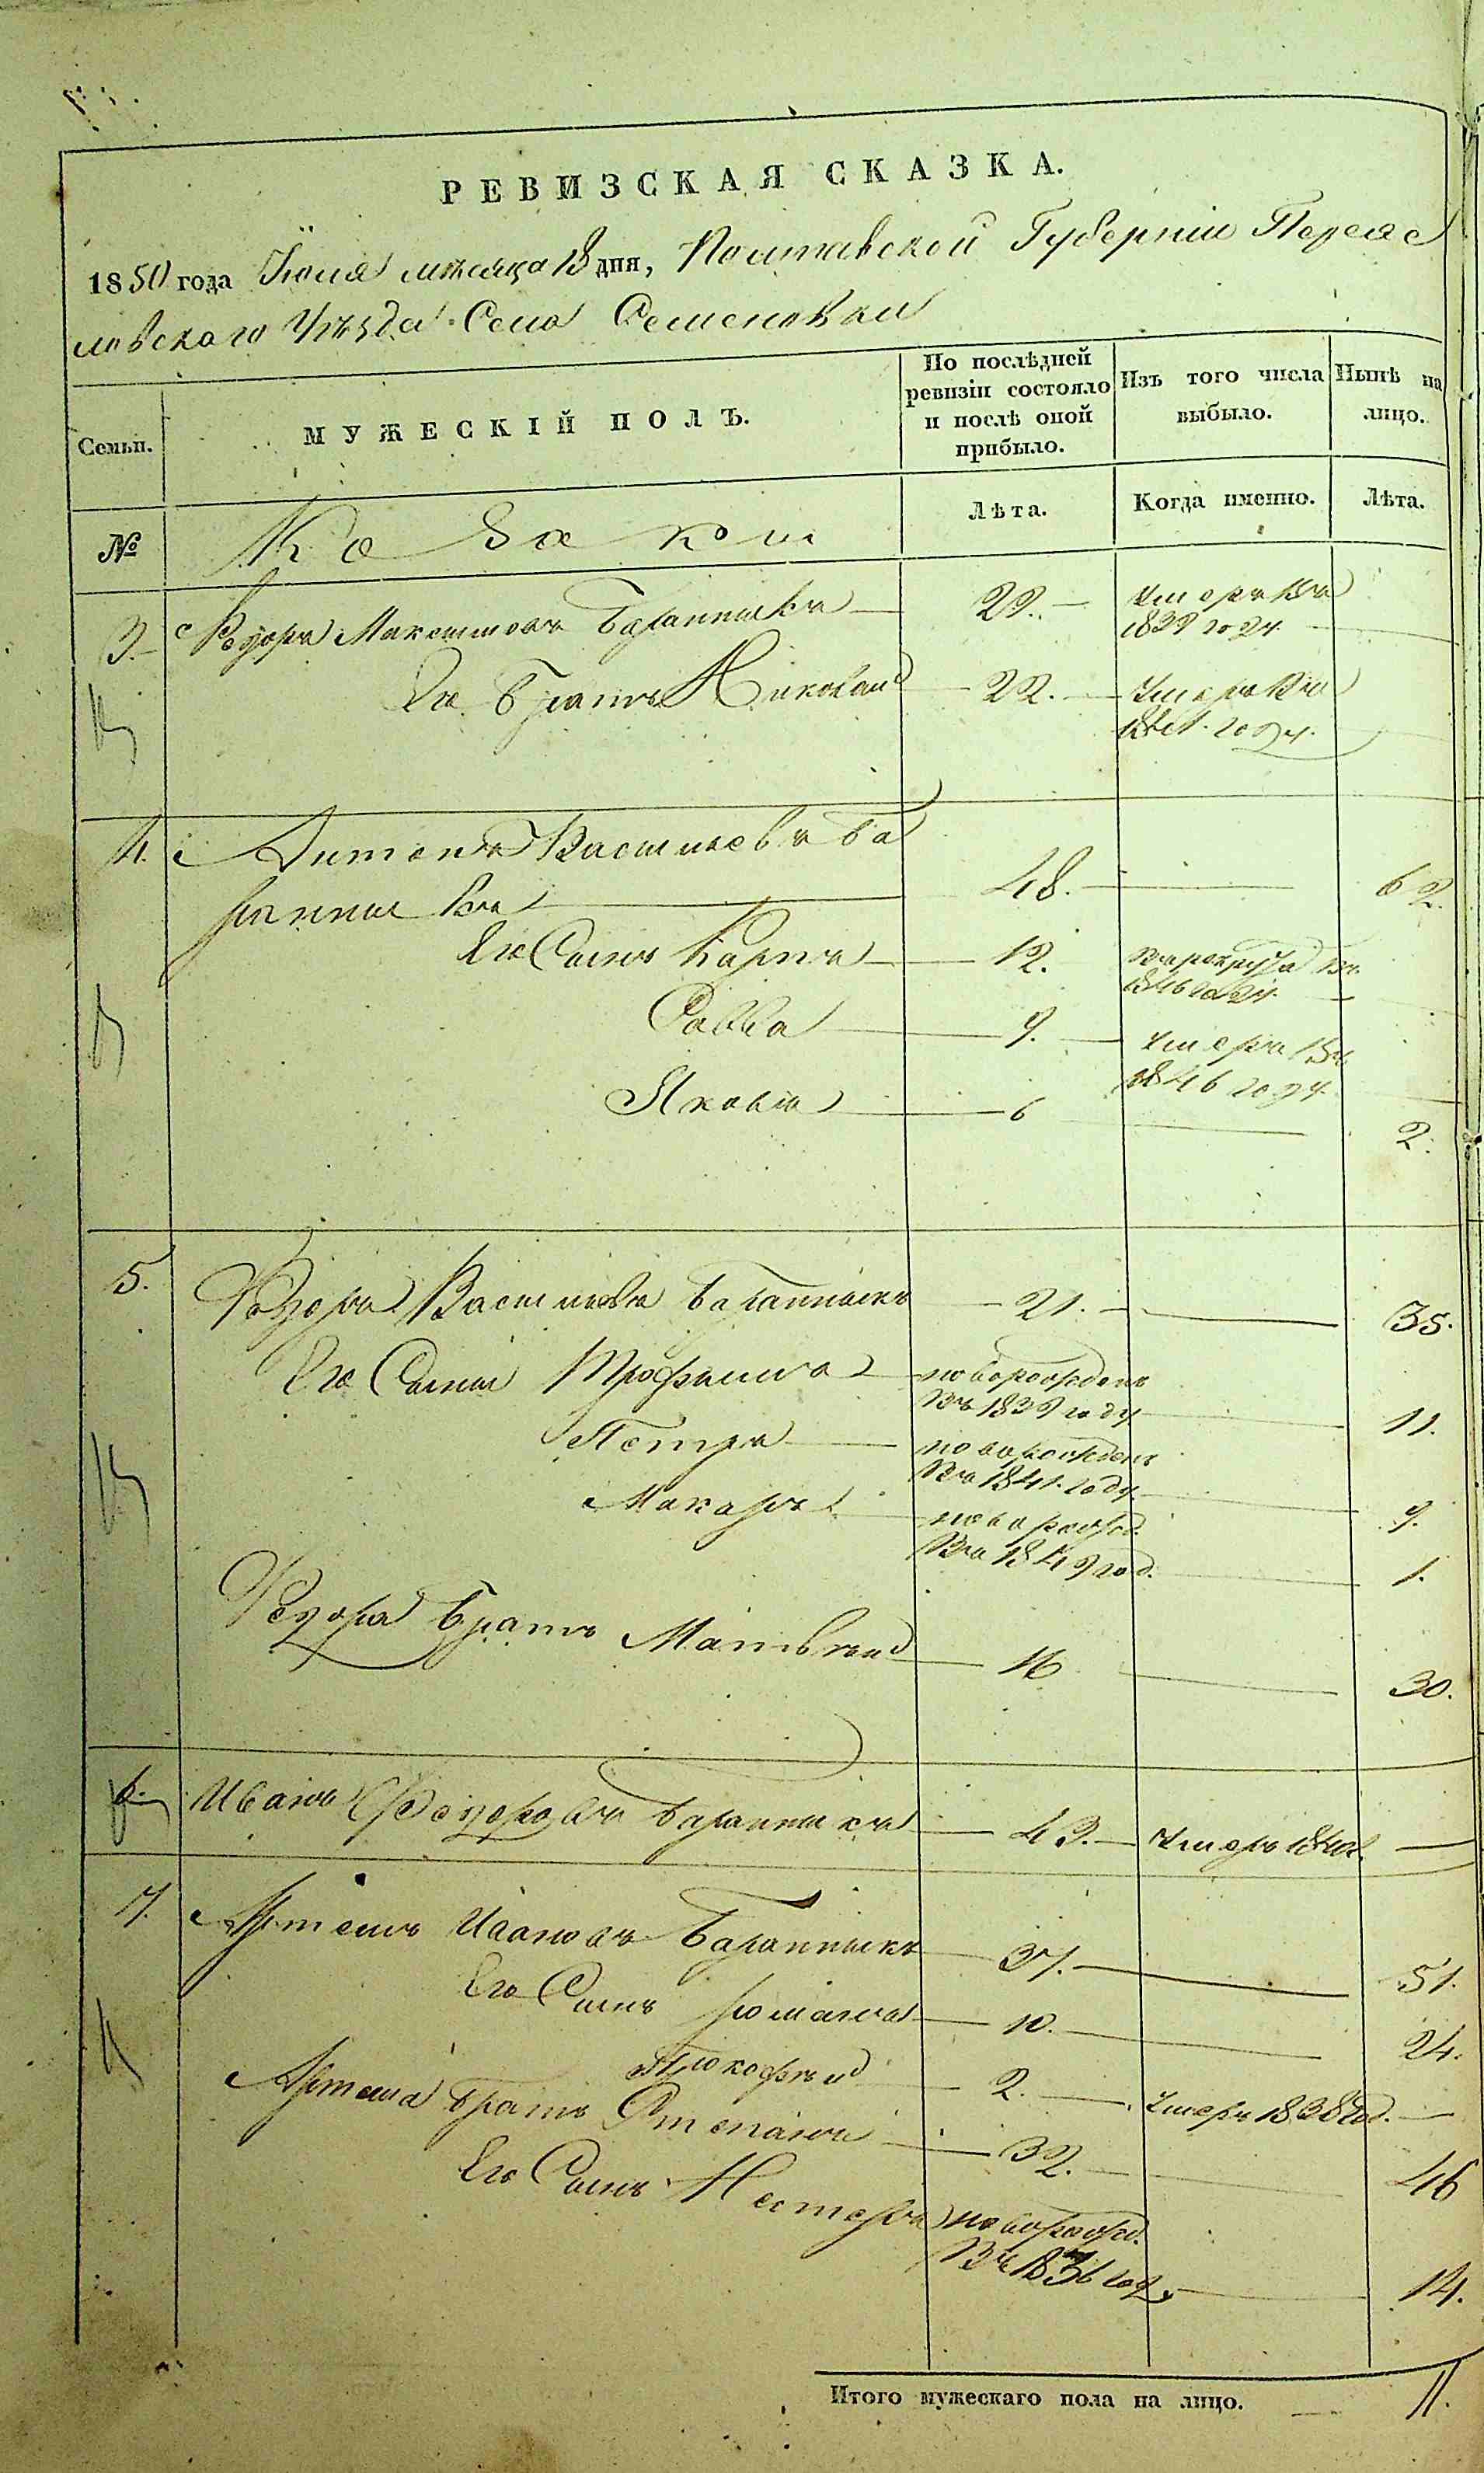 РЕВИЗСКАЯ СКАЗКА.
1850 года Июля месяца 13 дня, Полтавской Губерніи Переяс
ловского Уѣзда Села Семеновки
Семьи.
МУЖЕСКІЙ ПОЛЪ.
По послѣдней ревизіи состояло и послѣ оной прибыло.
Изъ того числа выбыло.
Нынѣ на лицо.
№
Козаки
Лѣта.
Когда именно.
Лѣта.
3. Федоръ Максимовъ Баранникъ 29. умеръ въ
1839 году
Его братъ Николай 22. умеръ въ
году.
4. Антонъ Васильевъ Ба
ранникъ 48. 62.
Его Сынъ Карпъ 12. въ рекруты въ
1846 году
Савва 9. умеръ въ
1846 году
Яковъ 6 2.
5. Федоръ Васильевъ Баранникъ 21. 35.
Его Сыны Трофимъ новорожденъ
въ 1839 году 11.
Петръ новорожденъ
въ 1841 году 9.
Макаръ новорожд.
въ 1849 год. 1.
Федора братъ Матвей 16 30.
6. Иванъ Федоровъ Баранникъ 43. умеръ
7. Артемъ Ивановъ Баранникъ 37. 51.
Его Сынъ Романъ 10. 24.
Прокофій 2. умеръ 1838 год.
Артема братъ Степанъ 32. 46
Его Сынъ Нестеръ новорожд.
въ 1836 году 14.
Итого мужескаго пола на лицо. 11.